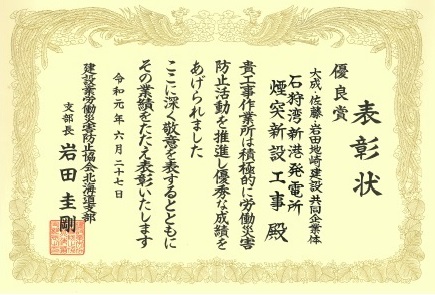 表彰状
優良賞
大成・佐藤・岩田地崎建設 共同企業体
石狩湾新港発電所
煙突新設工事 殿
貴工事作業所は積極的に労働災害
防止活動を推進し優秀な成績を
あげられました
ここに深く敬意を表するとともに
その業績をたたえ表彰いたします
令和元年六月二十七日
建設業労働災害防止協会北海道支部
支部長 岩田圭剛